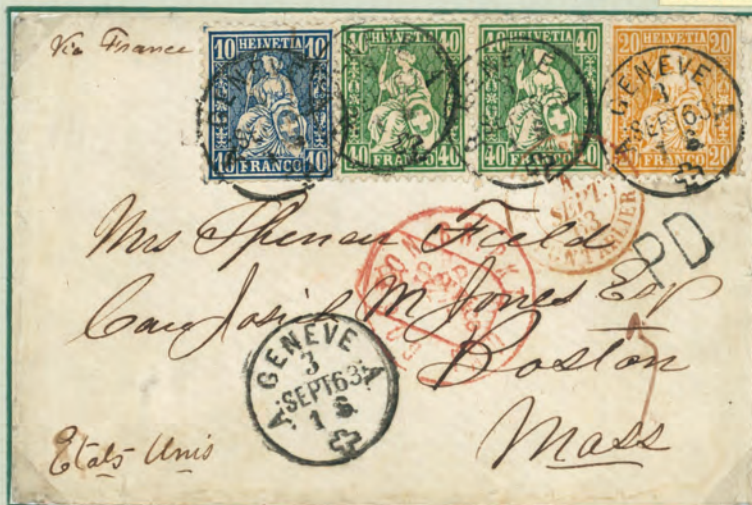 Via France
10 HELVETIA 10
10 FRANCO 10
40 HELVETIA 40
40 FRANCO 40
40 HELVETIA 40
40 FRANCO 40
20 HELVETIA 20
20 FRANCO 20
GENEVE
GENEVE
GENEVE
A GENEVE A
3
SEPT 63
SEPT.
63
PD
Mrs Spencer Field
Care Josiah M Jones Esq
Boston
Mass
A GENEVE A
3
SEPT 63
1 S
Etats Unis